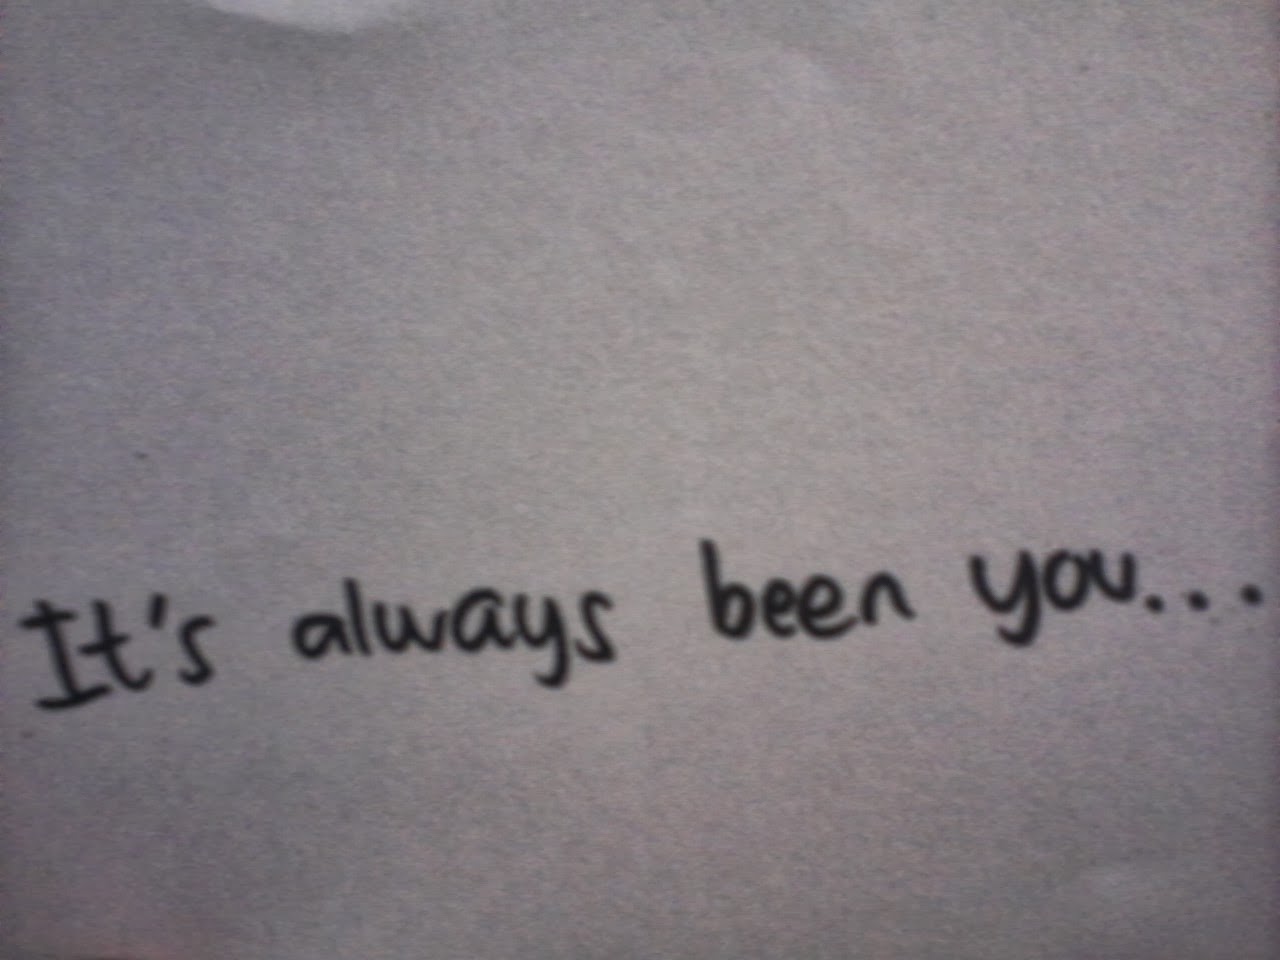 It's always been you...